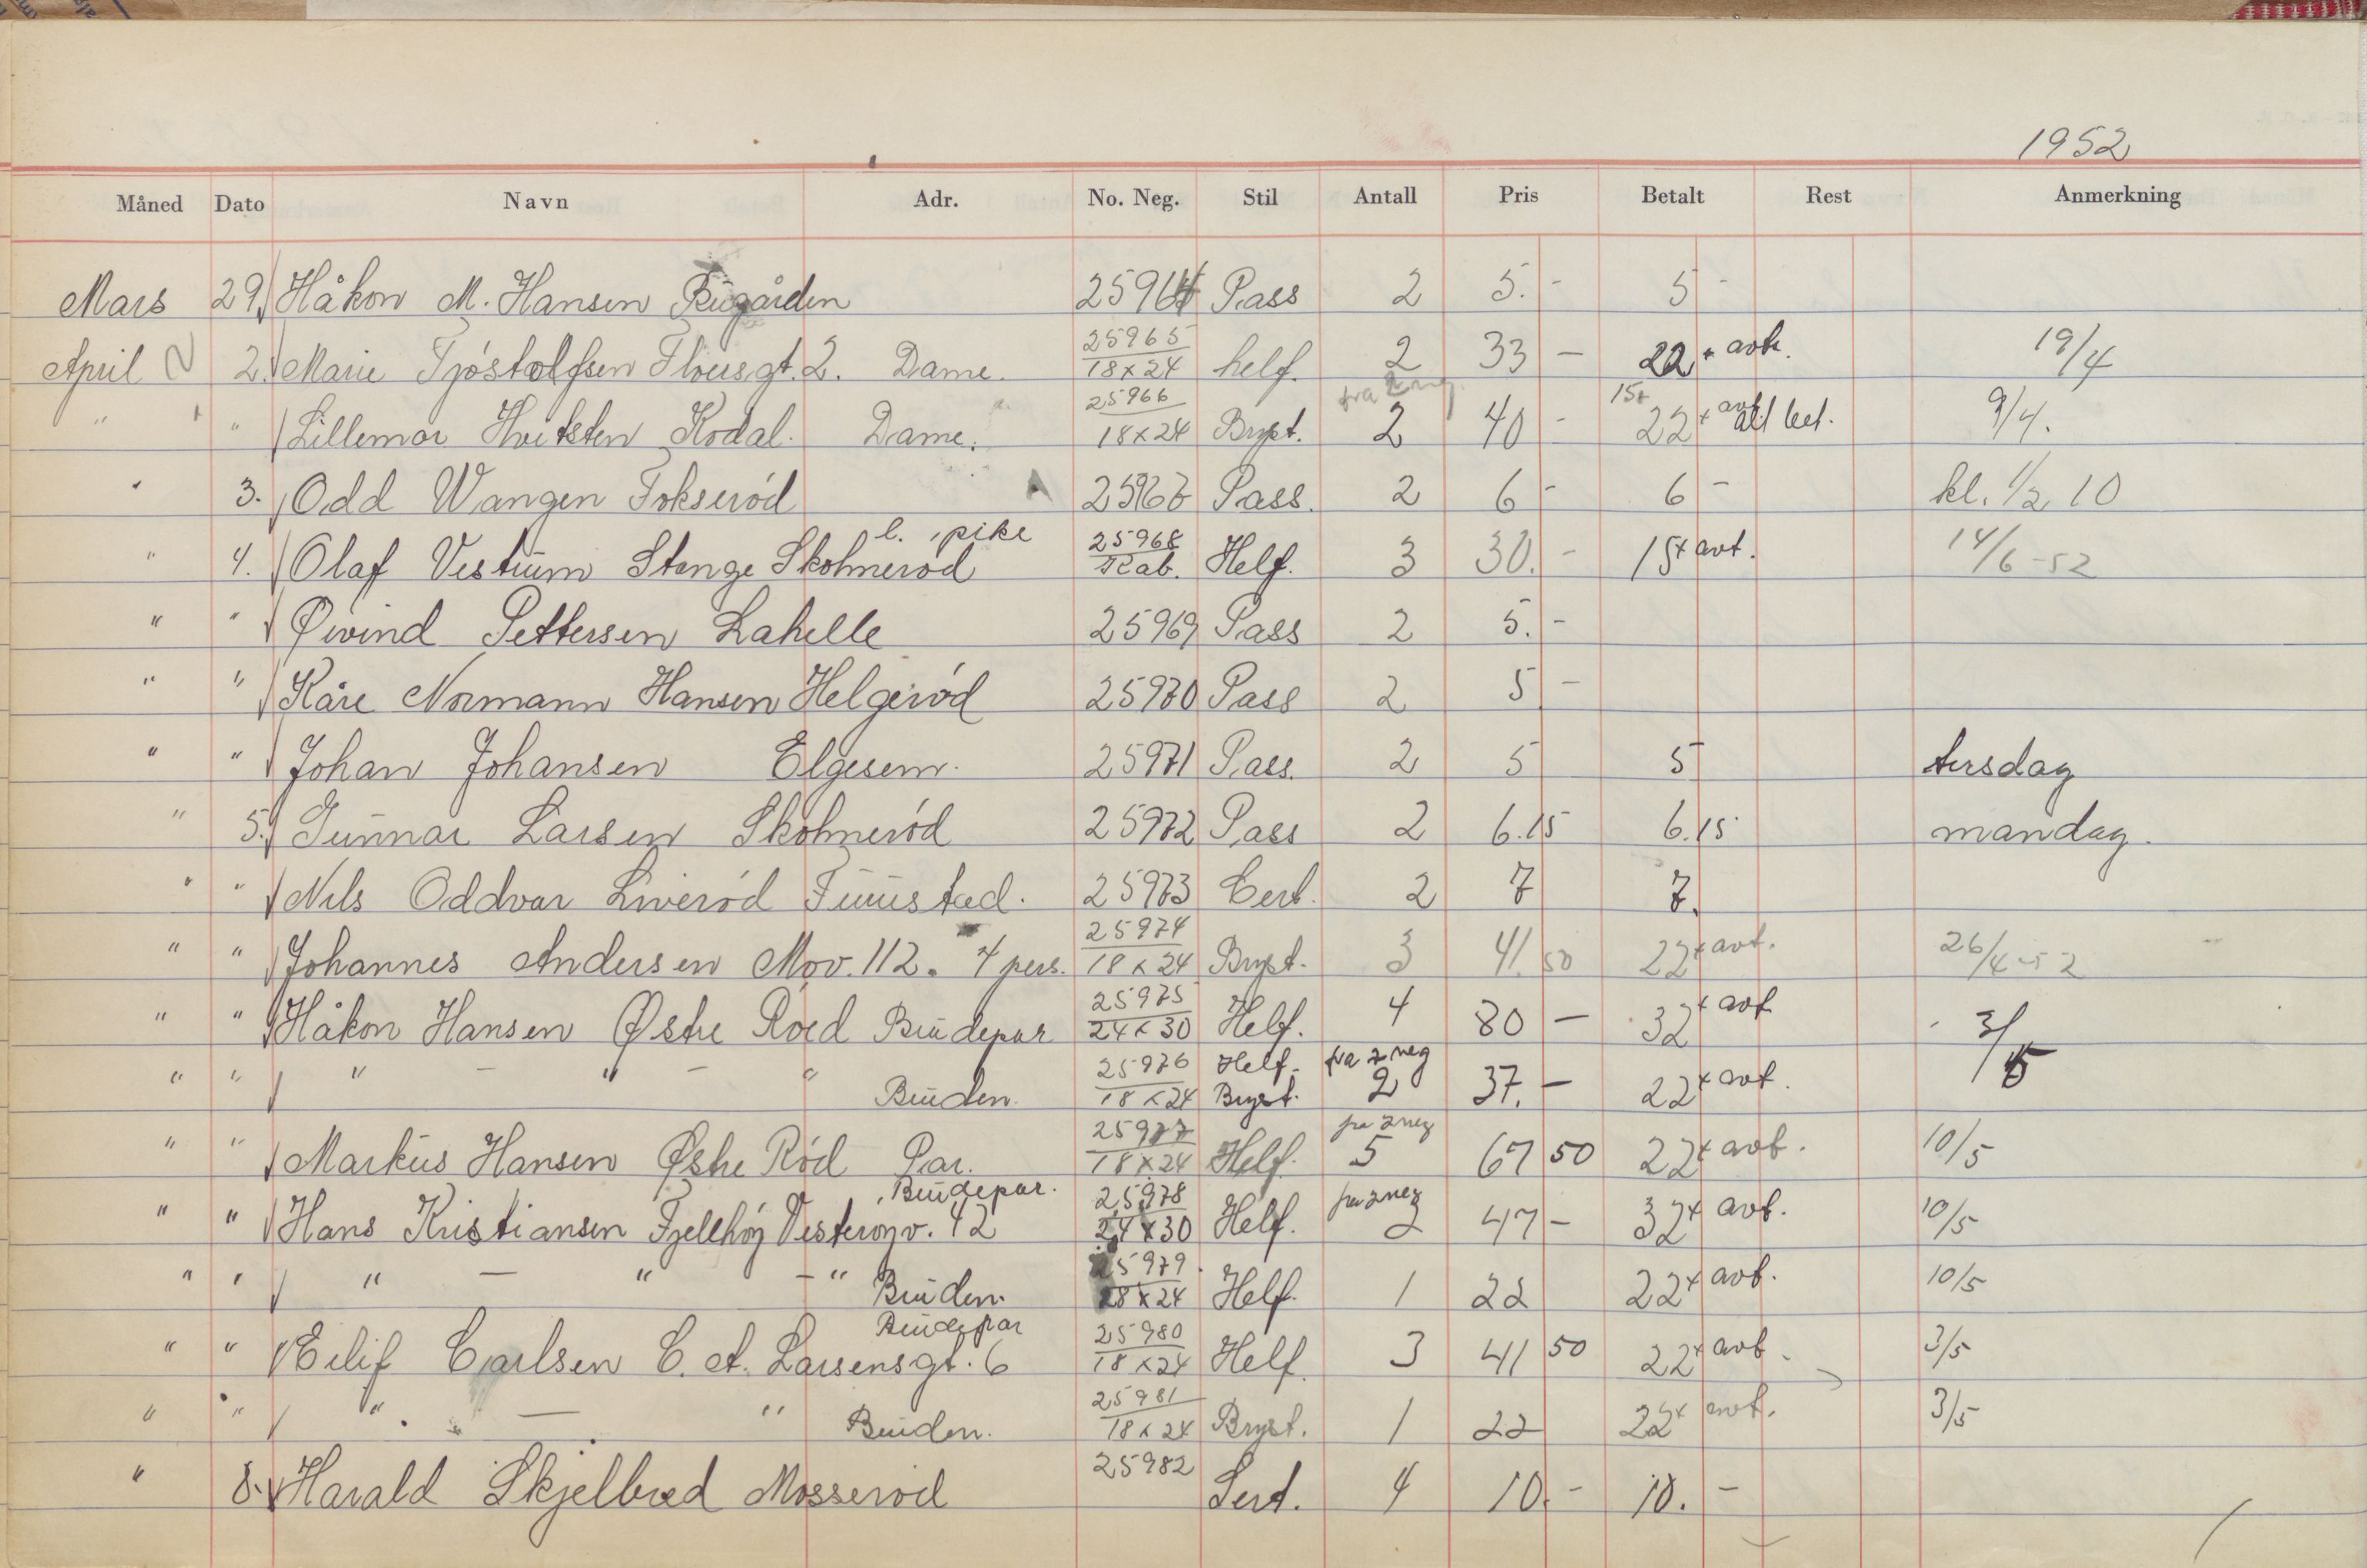 1952
Måned Dato Navn Adr. No. Neg. Stil Antall Pris Betalt Rest Anmerkning
Mars 29. Håkon M. Hansen Bugården 25964 Pass 2 5. - 5 -
April 2. Marie Tjøstolfsen Thorsgt. 2. Dame. 25965 18x24 helf. 2 33 - 22 + avt. 19/4
" " Lillemor Hvitsten Kodal. Dame. 25966 18x24 Bryst. fra 2 neg. 2 40 - 15+ 22+ avt. alt bet. 9/4.
" 3. Odd Wangen Fokserød 25967 Pass. 2 6 - 6 - kl. 1/2 10
" 4. Olaf Vestrum Stange Skolmerød l. pike 25968 Kab. Helf. 3 30. - 15+ avt. 14/6-52
" " Øivind Pettersen Lahelle 25969 Pass 2 5. -
" " Kåre Normann Hansen Helgerød 25970 Pass 2 5 -
" " Johan Johansen Elgesem. 25971 Pass. 2 5 5 tirsdag
" 5. Gunnar Larsen Skolmerød 25972 Pass 2 6.15 6.15 mandag.
" " Nils Oddvar Liverød Furustad. 25973 Cert. 2 7 7.
" " Johannes Andersen Mov. 112. 4 pers. 25974 18x24 Bryst. 3 41.50 22+ avt. 26/4-52
" " Håkon Hansen Østre Roed Brudepar 25975 24x30 Helf. 4 80 - 32+ avt 3/5
" " " - " - " Bruden. 25976 18x24 Helf. Bryst. fra 2 neg 2 37. - 22+ avt.
" " Markus Hansen Østre Rød Par. 25977 18x24 Helf. fra 2 neg 5 67 50 22+ avt. 10/5
" " Hans Kristiansen Fjellhøy Vesterøyv. 42 Brudepar. 25978 24x30 Helf. fra 2 neg 2 47 - 32+ avt. 10/5
" " " - " - " Bruden. 25979. 18x24 Helf. 1 22 22+ avt. 10/5
" " Eilif Carlsen C. A. Larsensgt. 6 Brudepar 25980 18x24 Helf. 3 41 50 22+ avt. 3/5
" " " - " Bruden. 25981 18x24 Bryst. 1 22 22+ avt. 3/5
" 8. Harald Skjelbred Mosserød 25982 Sert. 4 10. - 10. -